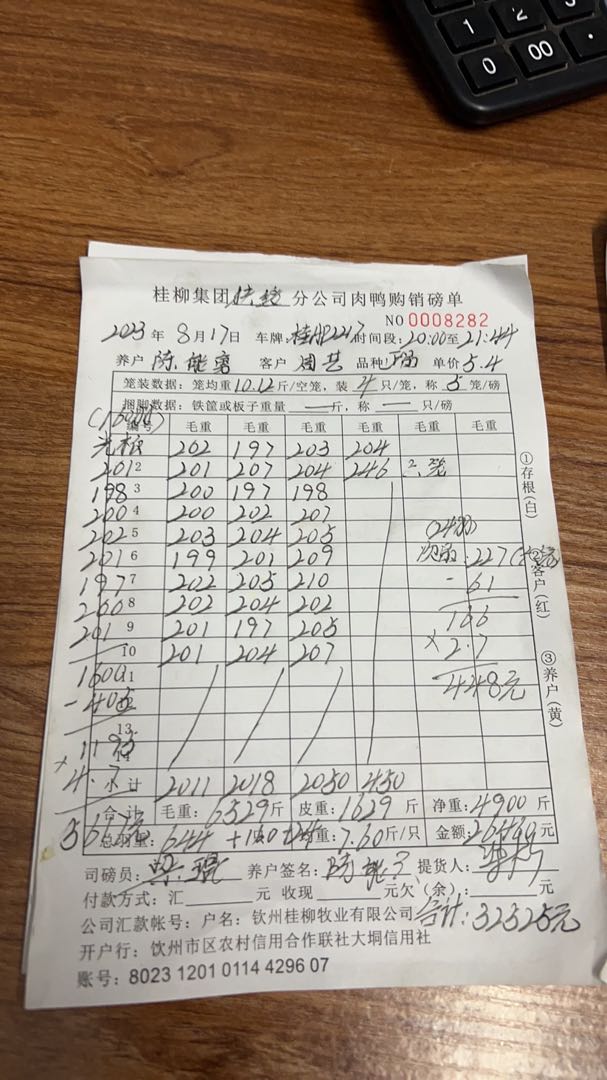 1
2
0
00
桂柳集团 分公司肉鸭购销磅单
NO 0008282
2023年 8月17日 车牌:桂AP2217 时间段:20:00至21:44
养户 陈能 客户 周艺 品种: 瑶 单价 5.4
笼装数据:笼均重10.12斤/空笼,装4只/笼,称5笼/磅
捆脚数据:铁筐或板子重量 — 斤,称 — 只/磅
编号 毛重 毛重 毛重 毛重 毛重 毛重
光板 202 197 203 204
201 2 201 207 204 246 2笼
198 3 200 197 198
200 4 200 202 207
202 5 203 204 205
201 6 199 201 209 227
197 7 202 205 210 -61
200 8 202 204 202 166
201 9 201 197 205 ×2.7
10 201 204 207 448元
1600 11
-405 12
1195 13
×4.7 14
小计 2011 2018 2050 450
合计 毛重:6529斤 皮重:1629斤 净重:4900斤
总羽量:644+ 均重:7.60斤/只 金额:26460元
司磅员: 养户签名: 提货人:
付款方式:汇 元 收现 元欠(余): 元
公司汇款帐号:户名:钦州桂柳牧业有限公司 合计:32525元
开户行:钦州市区农村信用合作联社大垌信用社
账号:8023 1201 0114 4296 07
①存根(白)
②客户(红)
③养户(黄)